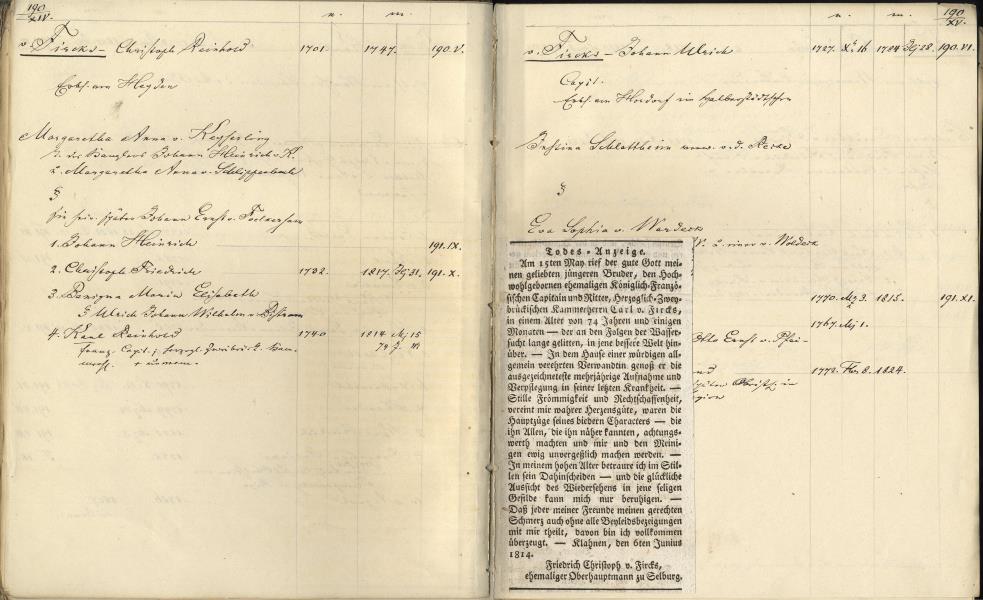 190
XIV.
n. m.
v. Fircks - Christoph Reinhold 1701. 1747. 190.V.
Erbh. von Heyden
Margaretha Anna v. Keyserling
T. des Kanzlers Johann Heinrich v. K.
u. Margaretha Anna v. Schlippenbach
§
Johann Ernst v.
1. Johann Heinrich 191.IX.
2. Christoph Friedrich 1732. 1817. 31. 191.X.
3. Maria Elisabeth
§ Ulrich Johann Wilhelm v.
4. Karl Reinhold 1740 1814 Mj 15
franz. Capit.
74 J.
190
XV.
n. m.
v. Fircks - Johann Ulrich 1727. 16 1784 28. 190.VI.
Capit.
Erbh. von im Halberstädtschen
Schlottheim verw. v. d. Recke
§
Eva Sophia v.
u. einer v.
1770. 3. 1815. 191.XI.
1767. Mj 1.
Otto Ernst v.
1772. 8. 1824.
Todes-Anzeige.
Am 15ten May rief der gute Gott mei-
nen geliebten jüngeren Bruder, den Hoch-
wohlgebornen ehemaligen Königlich-Franzö-
sischen Capitain und Ritter, Herzoglich-Zwey-
brückischen Kammerherrn Carl v. Fircks,
in einem Alter von 74 Jahren und einigen
Monaten — der an den Folgen der Wasser-
sucht lange gelitten, in jene bessere Welt hin-
über. — In dem Hause einer würdigen all-
gemein verehrten Verwandtin genoß er die
ausgezeichneteste mehrjährige Aufnahme und
Verpflegung in seiner letzten Krankheit. —
Stille Frömmigkeit und Rechtschaffenheit,
vereint mir wahrer Herzensgüte, waren die
Hauptzüge seines biedern Characters — die
ihn Allen, die ihn näher kannten, achtungs-
werth machten und mir und den Meini-
gen ewig unvergeßlich machen werden. —
In meinem hohen Alter betraure ich im Stil-
len sein Dahinscheiden — und die glückliche
Aussicht des Wiedersehens in jene seligen
Gefilde kann mich nur beruhigen. —
Daß jeder meiner Freunde meinen gerechten
Schmerz auch ohne alle Beyleidsbezeigungen
mit mir theilt, davon bin ich vollkommen
überzeugt. — Klahnen, den 6ten Junius
1814.
Friedrich Christoph v. Fircks,
ehemaliger Oberhauptmann zu Selburg.